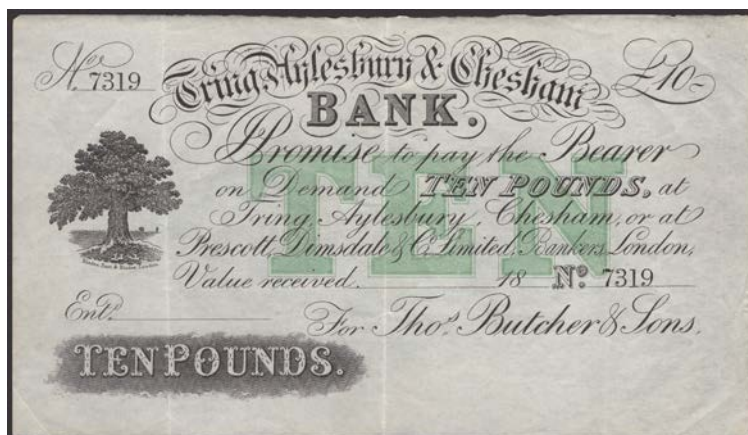 No. 7319
£10-
Tring Aylesbury & Chesham
BANK.
Promise to pay the Bearer
on Demand TEN POUNDS, at
Tring, Aylesbury, Chesham, or at
Prescott, Dimsdale & Co. Limited, Bankers, London,
Value received. 18 No. 7319
Entd.
For Thos. Butcher & Sons.
TEN POUNDS.
TEN